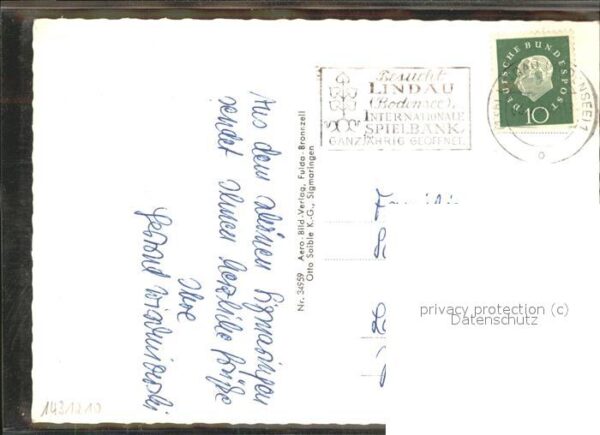 Aus dem schönen Sigmaringen
sendet Ihnen herzliche Grüße
Ihre
Nr. 34959 Aero-Bild-Verlag, Fulda-Bronnzell
Otto Saible K.-G., Sigmaringen
Besucht
LINDAU
(Bodensee),
INTERNATIONALE
SPIELBANK,
GANZJÄHRIG GEÖFFNET.
DEUTSCHE BUNDESPOST
10
privacy protection (c)
Datenschutz
1431210